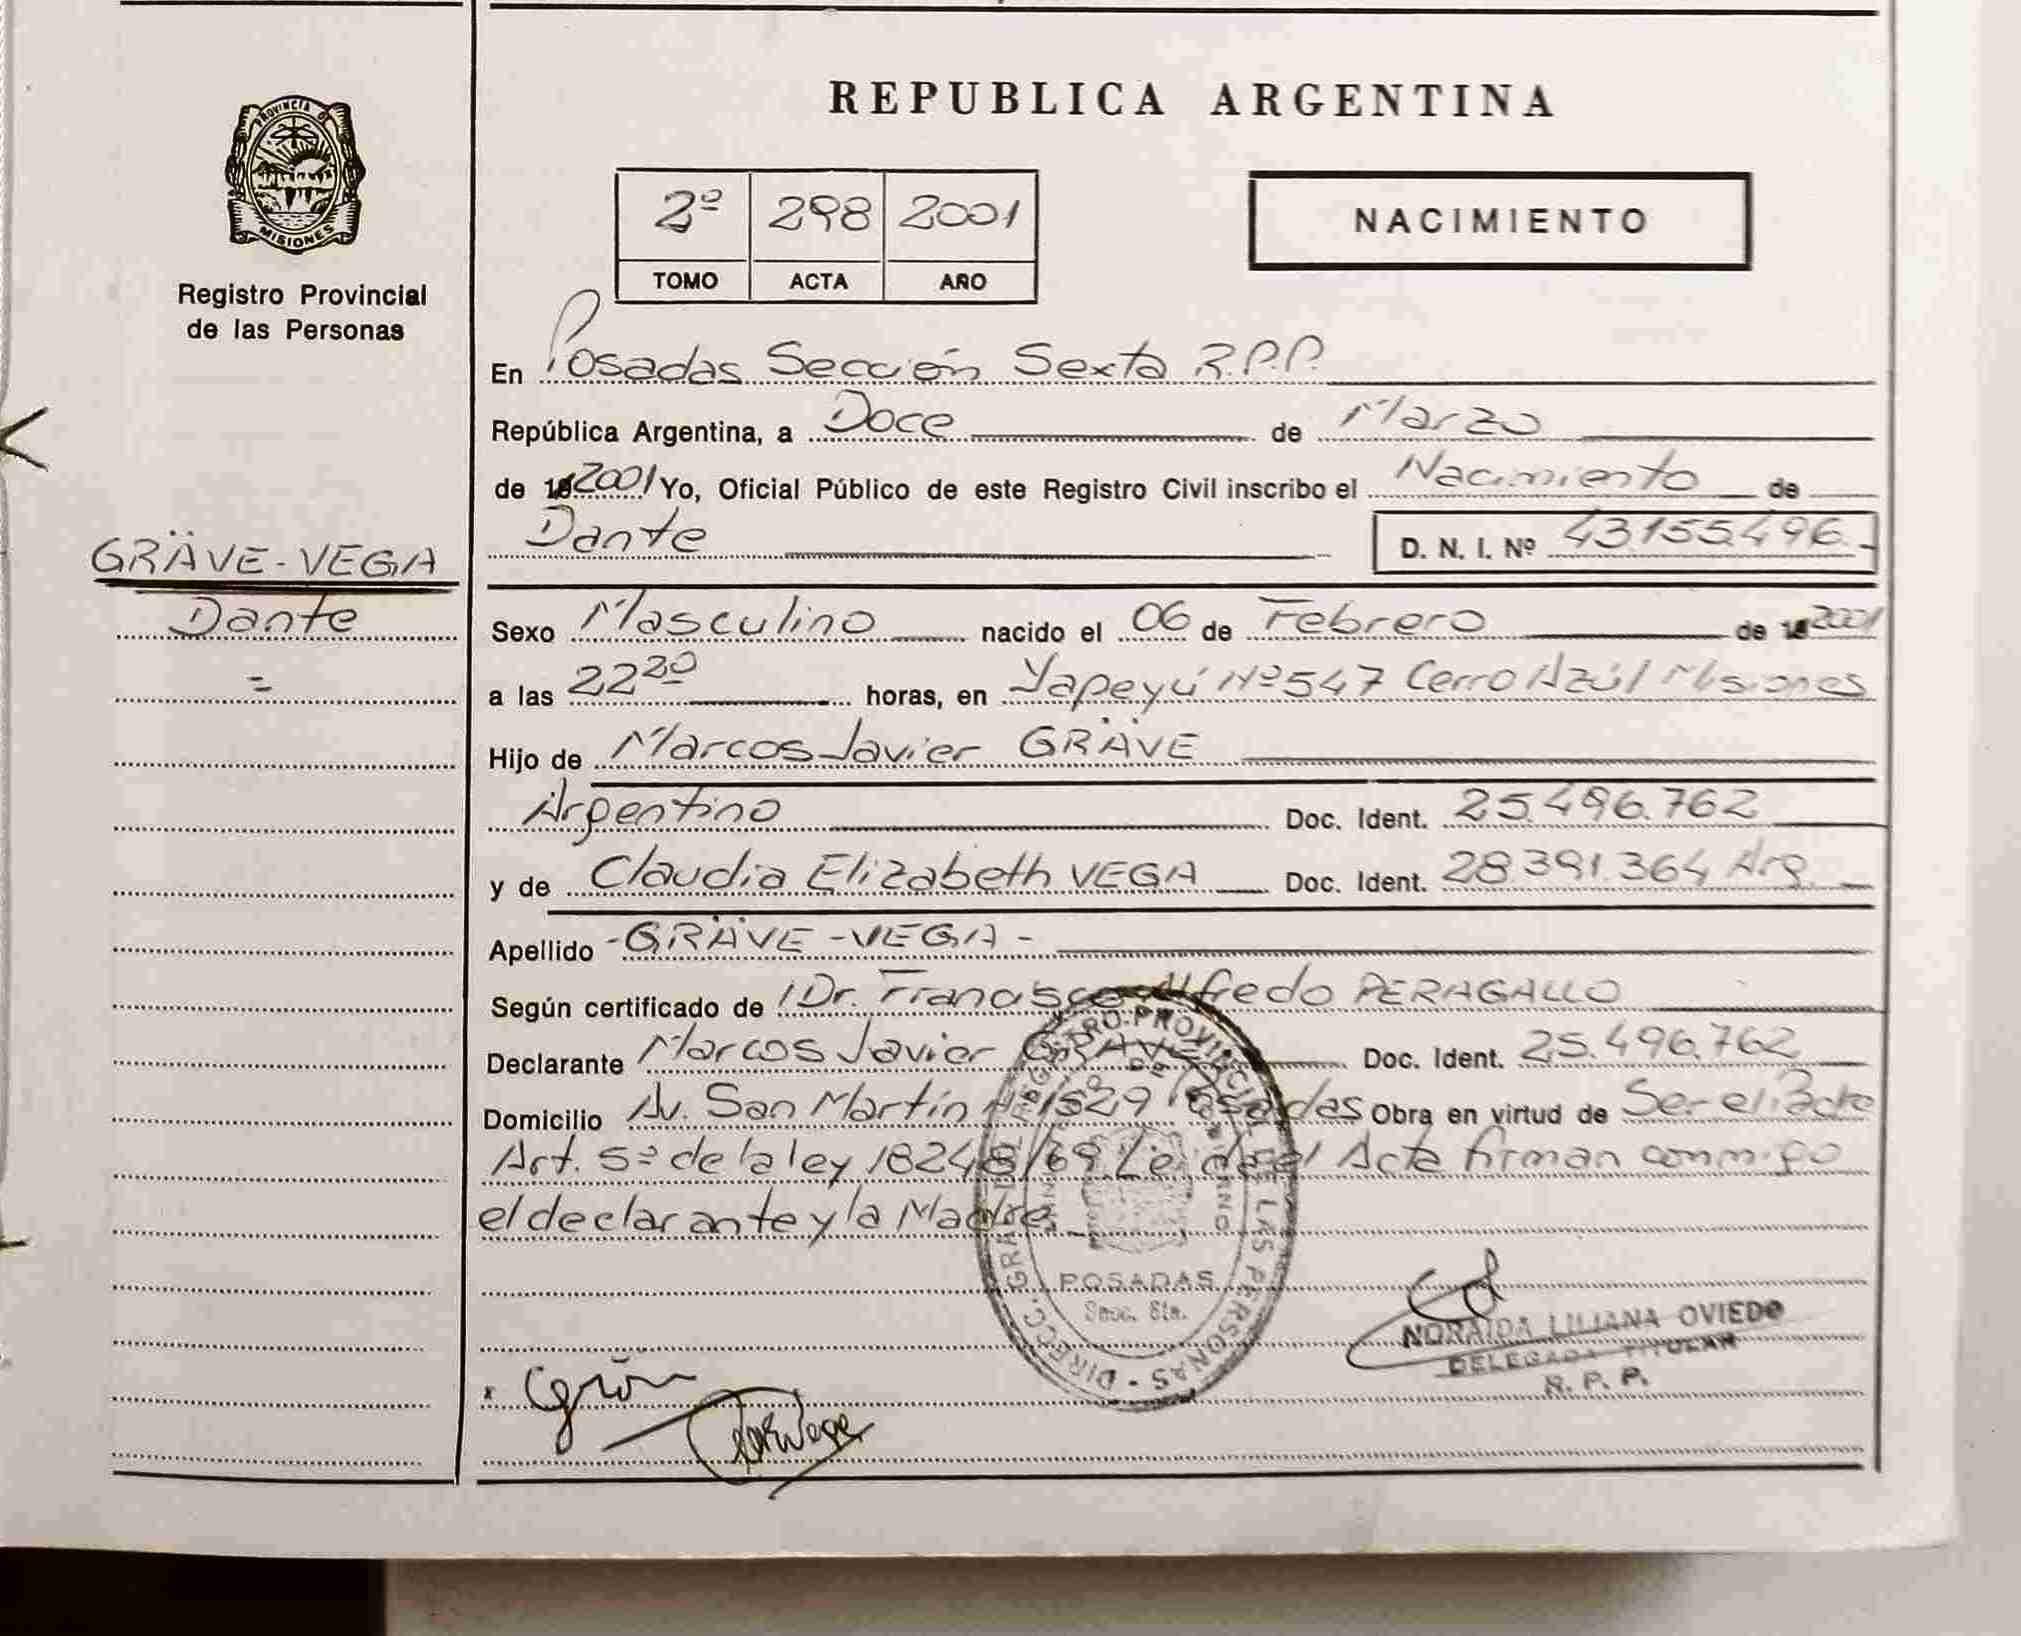 REPUBLICA ARGENTINA
PROVINCIA DE MISIONES
Registro Provincial
de las Personas
2º 298 2001
TOMO ACTA AÑO
NACIMIENTO
En Posadas Sección Sexta R.P.P.
República Argentina, a Doce de Marzo
de 19 2001 Yo, Oficial Público de este Registro Civil inscribo el Nacimiento de
Dante D. N. I. Nº 43.155.496.-
GRÄVE-VEGA
Dante
=
Sexo Masculino nacido el 06 de Febrero de 19 2001
a las 22 20 horas, en Yapeyú Nº 547 Cerro Azúl Misiones
Hijo de Marcos Javier GRÄVE
Argentino Doc. Ident. 25.496.762
y de Claudia Elizabeth VEGA Doc. Ident. 28.391.364 Arg.
Apellido -GRÄVE-VEGA-
Según certificado de Dr. Francisco Alfredo PERAGALLO
Declarante Marcos Javier GRÄVE Doc. Ident. 25.496.762
Domicilio Av. San Martín Nº 1529 Posadas Obra en virtud de Ser el Padre
Art. 5º de la ley 18248/69 Leida el Acta firman conmigo
el declarante y la Madre
DIRECC. GRAL. DEL REGISTRO PROVINCIAL DE LAS PERSONAS
POSADAS
Secc. 6ta.
NORAIDA LILIANA OVIEDO
DELEGADA TITULAR
R. P. P.